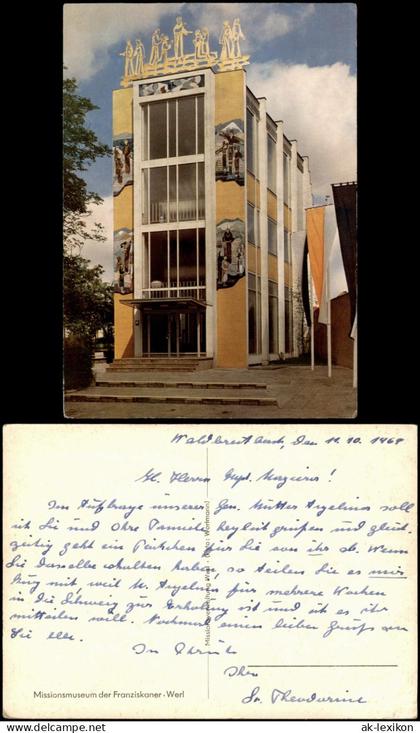 Waldbreitbach, den 11.10.1968
Herrn
Im Auftrage unserer Gen. Mutter soll
ich Sie und Ihre Familie herzlich grüßen und gleich-
zeitig geht ein Päckchen für Sie von ihr ab. Wenn
Sie dasselbe erhalten haben, so teilen Sie es mir
mit, weil M. für mehrere Wochen
in die Schweiz zur Erholung ist und ich es ihr
mitteilen will. Nochmals einen lieben Gruß an
Sie alle.
In Christo
Ihre
Sr. Theodorine
Missionsmuseum der Franziskaner · Werl
ak-lexikon